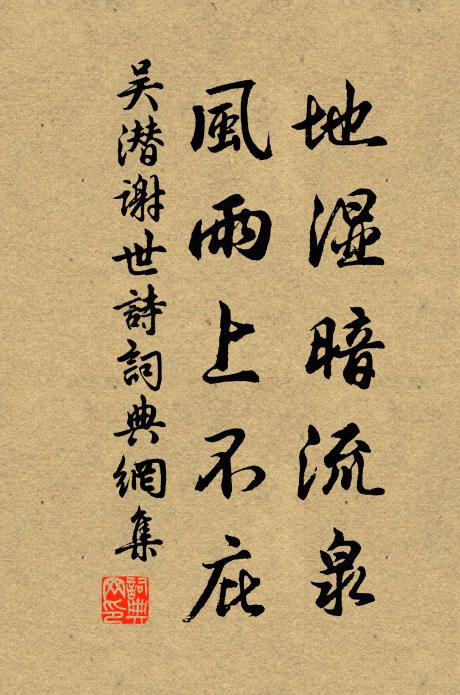 地湿暗流泉
風雨上不庇
吴潜谢世詩詞典網集
詞典网印